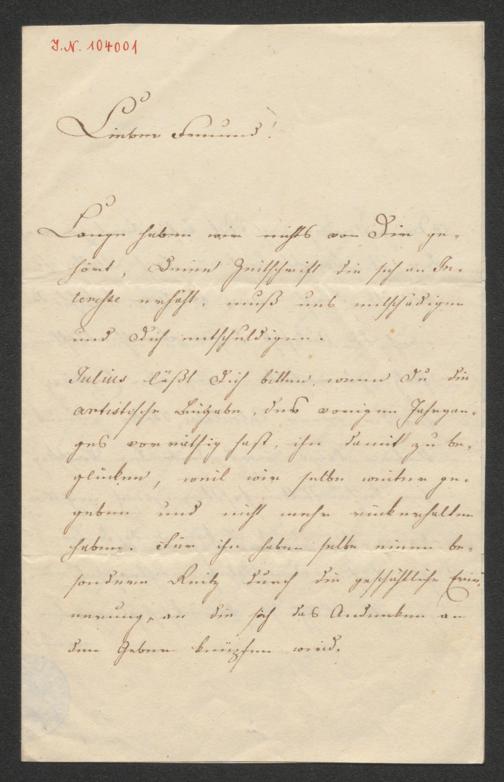 J.N. 104001
Lieber Freund!
Lange haben wir nichts von Dir ge-
hört, Deine Zeitschrift die sich an In-
teresse erhöht, muß uns entschädigen
und Dich entschuldigen.
Julius läßt Dich bitten, wenn Du die
artistische Beigabe, des vorigen Jahrgan-
ges vorräthig hast, ihn damit zu be-
glücken, weil wir selbe weiter ge-
geben und nicht mehr rückerhalten
haben. Für ihn haben selbe einen be-
sonderen Reitz durch die geschätzliche Erin-
nerung, an die sich das Andenken an
den Geber knüpfen wird.